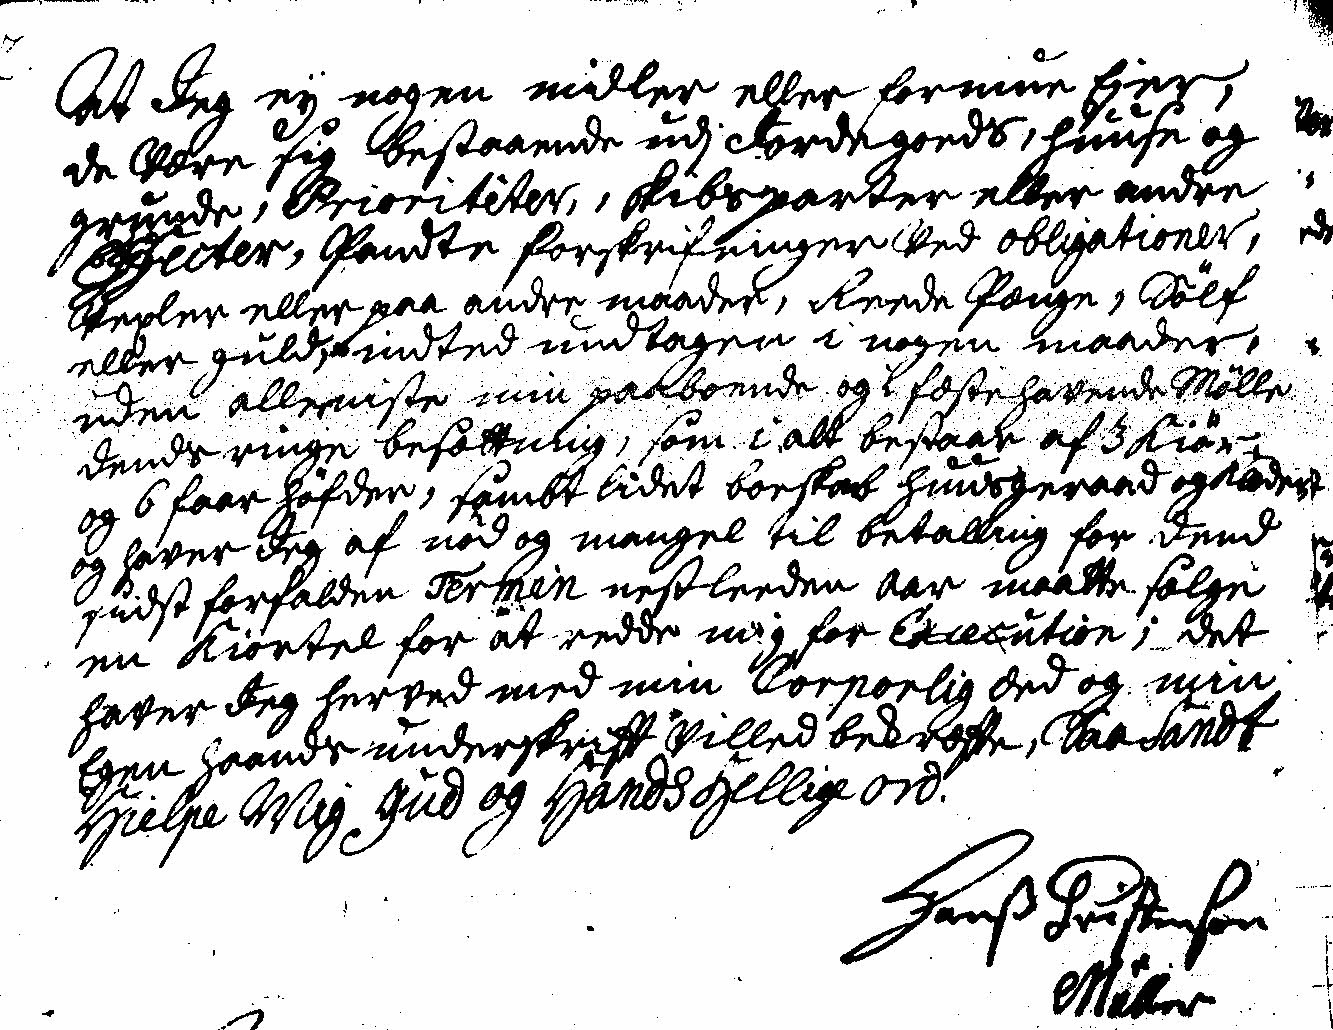 At Jeg eÿ nogen midler eller formue Ejer,
de være sig bestaaende udj Jordegoeds, huuse og
grunde, Prioritèter, skibsparter eller andre
Effecter, Pandte forskrifninger ved obligationer,
Vexler eller paa andre maader, Reede Penge, Sölf
eller guld, indted undtagen i nogen maader,
uden alleeniste min paaboende og i fæste havende Mølle
dends ringe besættning, som i alt bestaar af 3 Kiör
og 6 faar höfder, sambt lidet boeskab huusgeraad og Klæder
og haver Jeg af nöd og mangel til betalling for dend
sidst forfalden Termin nestleeden aar maatte sælge
en Kiortel for at redde mig for Execution; det
haver Jeg herved med min Corporlig æed og min
Egen haands underskrifft villed bekræffte, Saa Sandt
Hielpe Mig Gud og Hands Hellige ord.
Hanß Cristensøn
Møller